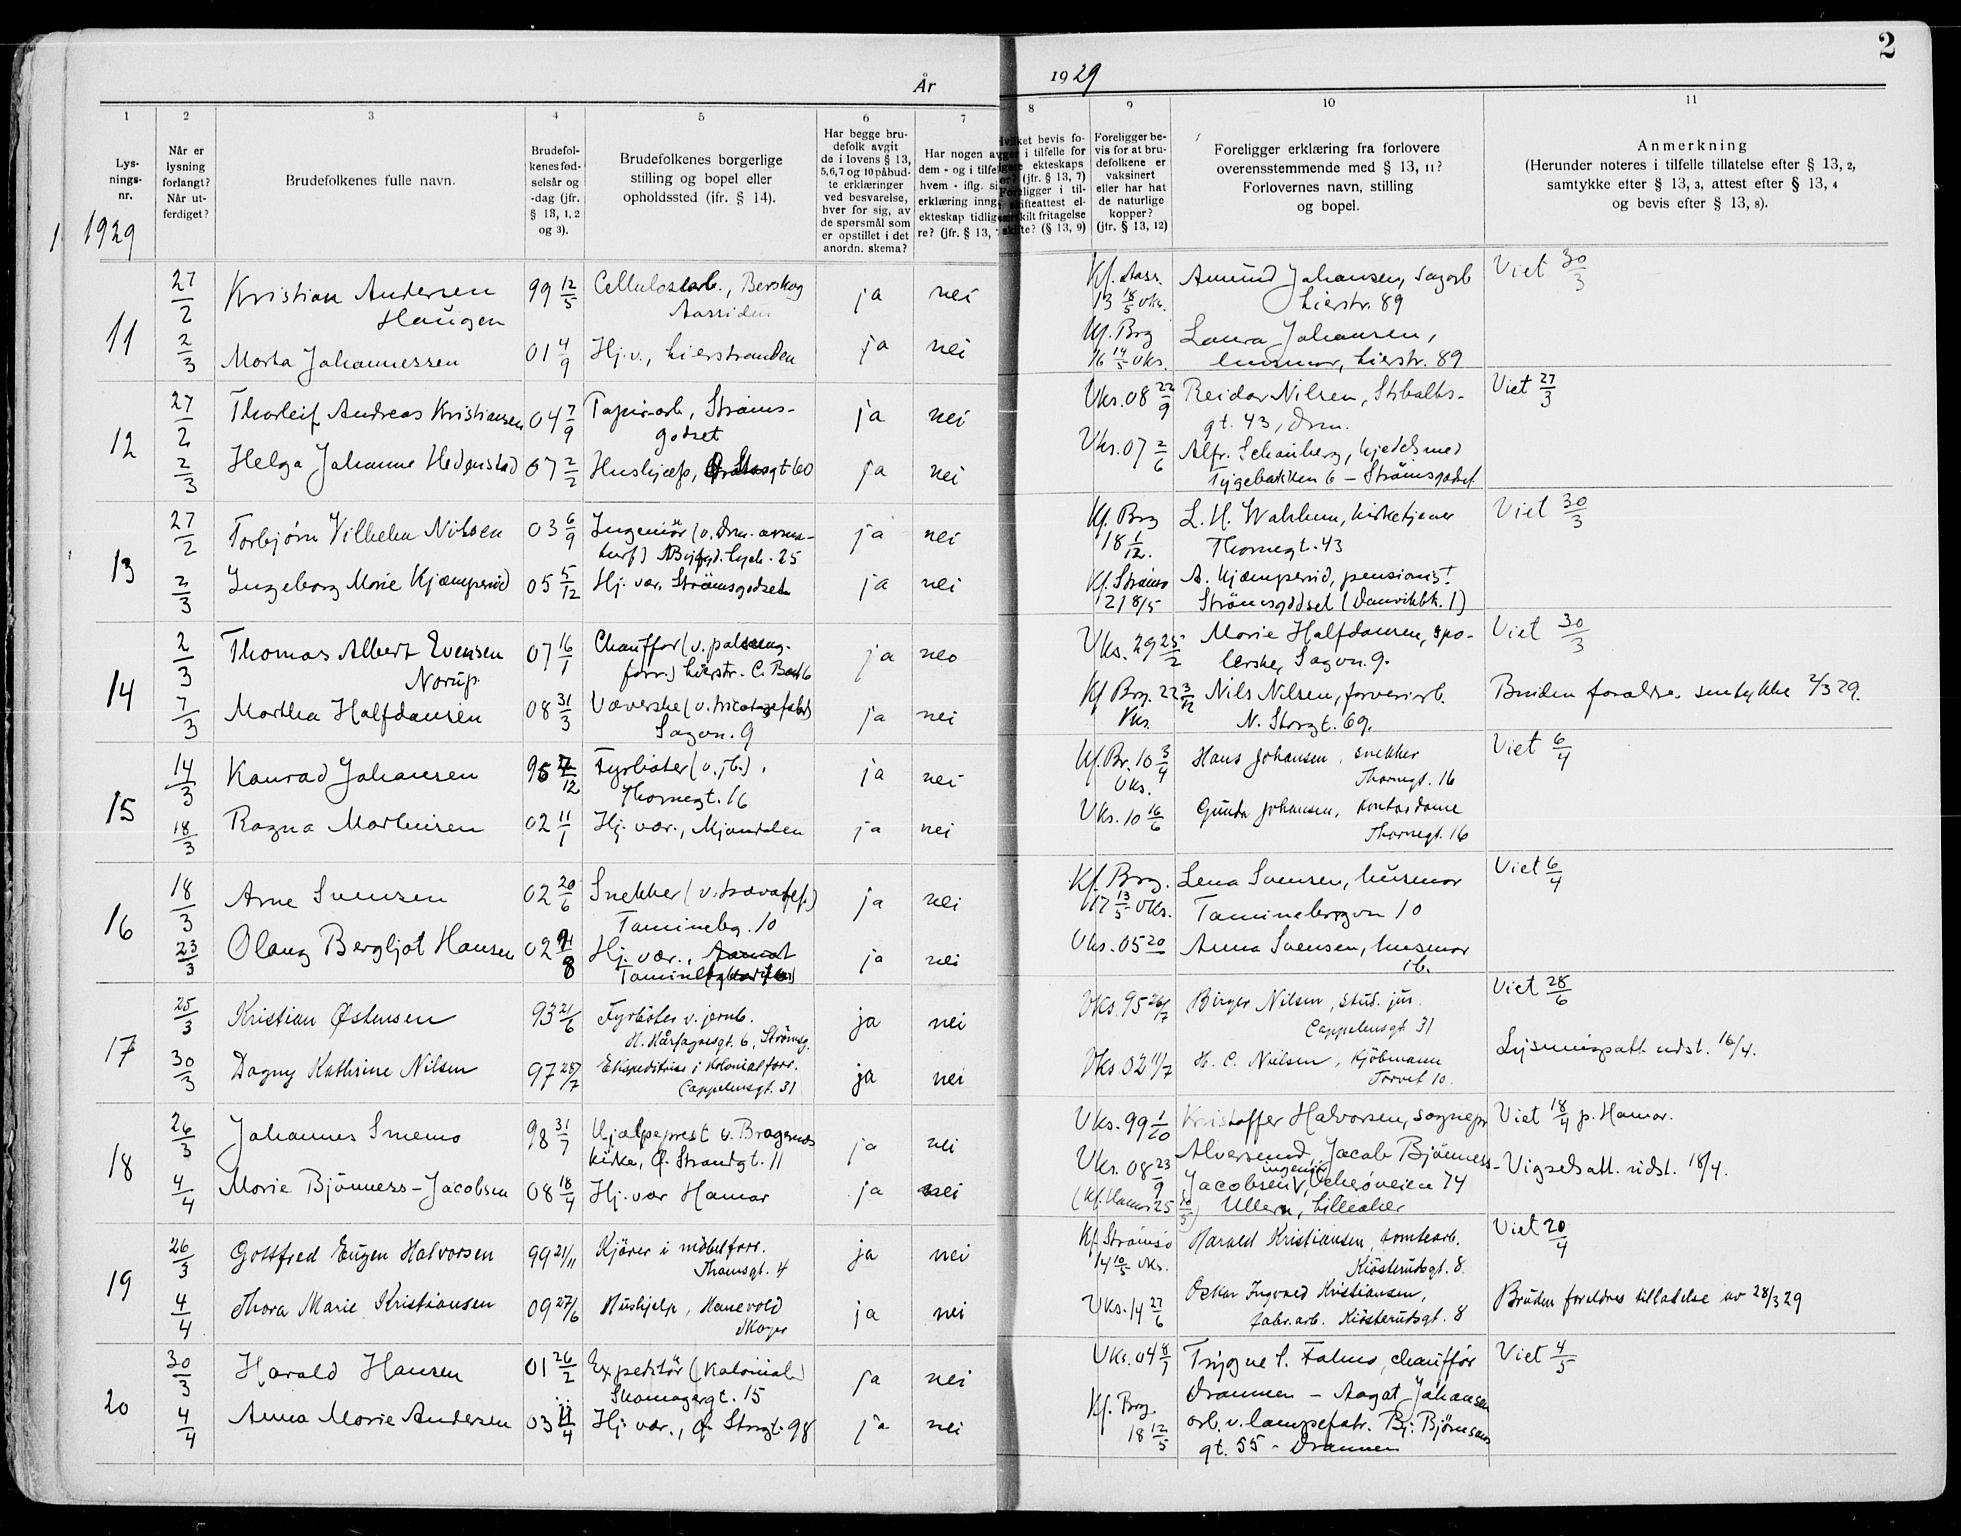 2
År 1929
1 2 3 4 5 6 7 8 9 10 11
Lys-
nings-
nr.
Når er
lysning
forlangt?
Når ut-
ferdiget?
Brudefolkenes fulle navn.
Brudefol-
kenes fød-
selsår og
-dag (jfr.
§ 13, 1, 2
og 3).
Brudefolkenes borgerlige
stilling og bopel eller
opholdssted (jfr. § 14).
Har begge bru-
defolk avgit
de i lovens § 13,
5,6,7 og 10 påbud-
te erklæringer
ved besvarelse,
hver for sig, av
de spørsmål som
er opstillet i det
anordn. skema?
Har nogen av
dem - og i tilfel
hvem - iflg. si
erklæring inng.
ekteskap tidlig
re? (jfr. § 13,
Hvilket bevis fo-
ger i tilfelle for
ekteskaps
(jfr. § 13, 7)
Foreligger i til-
skifteattest el-
særskilt fritagelse
skifte? (§ 13, 9)
Foreligger be-
vis for at bru-
defolkene er
vaksinert
eller har hat
de naturlige
kopper?
(jfr. § 13, 12)
Foreligger erklæring fra forlovere
overensstemmende med § 13, 11?
Forlovernes navn, stilling
og bopel.
Anmerkning
(Herunder noteres i tilfelle tillatelse efter § 13, 2,
samtykke efter § 13, 3, attest efter § 13, 4
og bevis efter § 13, 8).
1. 1929
11
27/2 Kristian Andersen Haugen 99 12/5 Cellulosearb., Berskog Aassiden ja nei
Kf. Aass. 13 18/5 vks. Amund Johansen, sagarb Lierstr. 89 Viet 30/3
2/3 Marta Johannessen 01 4/9 Hj.v., Lierstranden ja nei
Kf. Brg 16 14/5 vks. Laura Johansen, husmor, Lierstr. 89
12
27/2 Thorleif Andreas Kristiansen 04 7/9 Papirarb, Strøms-
godset ja nei
Vks. 08 22/9 Reidar Nilsen, Stibolts-
gt. 43, Drm. Viet 27/3
2/3 Helga Johanne Hedenstad 07 2/2 Hushjelp, gt 60 ja nei
Vks. 07 2/6 Alfr. Schauberg, kjedelsmed
Tygebakken 6 – Strømsgodset
13
27/2 Torbjørn Vilhelm Nilsen 03 6/9 Ingeniør (v. Drm. ja nei
Kf. Brg 18 1/12. L. H. Wahlum, kirketjener
Thornegt. 43 Viet 30/3
2/3 Ingeborg Marie Kjæmperud 05 5/12 Hj. vær. Strømsgodset ja nei
Kf. Strømsø 21 8/5 A. Kjæmperud, pensionist
Strømsgodset (Danvikbk. 1)
14
2/3 Thomas Albert Evensen Norup. 07 16/1 Chauffør (v. ja nei
Vks. 29 25/2 Marie Halfdansen, spo-
lerske, Sagvn. 9. Viet 30/3
7/3 Martha Halfdansen 08 31/3 Væverske (v. tricotagefabr)
Sagvn. 9 ja nei
Kf Brg. 22 3/12 Vks. Nils Nilsen, farveriarb.
N. Storgt. 69. Brudens foreldres samtykke 2/3 29.
15
14/3 Konrad Johansen 95 Fyrbøter (v. jb.),
Thornegt. 16 ja nei
Kf. Br. 10 3/4 Vks. Hans Johansen, snekker
Thornegt. 16 Viet 6/4
18/3 Ragna Mathisen 02 11/1 Hj. vær., Mjøndalen ja nei
Vks. 10 16/6 Gunda Johansen, kontordame
Thornegt. 16
16
18/3 Arne Svensen 02 20/6 Snekker (v. trævafef.)
Tamineby. 10 ja nei
Kf. Brg. 17 13/5 Vks. Lena Svensen, husmor
Taminebergvn 10 Viet 6/4
23/3 Olaug Bergljot Hansen 02 8 Hj. vær., ja nei
Vks. 05 20 Anna Svensen, husmor
ib.
17
25/3 Kristian Østensen 93 21/6 Fyrbøter v. jernb.
H. Hårfagresgt. 6, Strømsg. ja nei
Vks. 95 26/7 Birger Nilsen, stud. jur.
Cappelensgt 31 Viet 28/6
30/3 Dagny Kathrine Nilsen 97 28/7 Ekspeditrise i kolonialforr.
Cappelensgt. 31 ja nei
Vks 02 11/7 H. C. Nielsen, kjøbmann
Torvet 10. Lysningsatt. udst. 16/4.
18
26/3 Johannes Smemo 98 31/7 Hjælpeprest v. Bragernes
kirke, Ø. Strandgt. 11 ja nei
Vks. 99 1/10 Kristoffer Halvorsen, sognepr
Alversund, Jacob Bjønness-
Jacobsen, ingeniør, Vækerøveien 74
Ullern, Lilleaker Viet 18/4 p. Hamar.
4/4 Marie Bjønness-Jacobsen 08 18/4 Hj. vær Hamar ja nei
Vks. 08 23/9 (Kf. Hamar 25 Vigselsatt. udst. 18/4.
19
26/3 Gottfred Eugen Halvorsen 99 21/11 Kjører i møbelforr.
Thomsgt. 4 ja nei
Kf. Strømsø 14 10/5 vks. Harald Kristiansen, tomtearb.
Kiøsterudsgt. 8. Viet 20/4
4/4 Thora Marie Kristiansen 09 27/6 Hushjelp, Hanevold
Skoger ja nei
Vks. 14 27/6 Oskar Ingvald Kristiansen,
fabr. arb. Kiøsterudsgt. 8 Brudens foreldres tillatelse av 28/3 29
20
30/3 Harald Hansen 01 26/2 Expeditør (Kolonial)
Skomagergt. 15 ja nei
Vks. 04 8/7 Trygve S. Falmo, chauffør
Drammen – Aagat Johansen
arb. v. lampefabr. Bj: Bjørnsons
gt. 55 - Drammen Viet 4/5
4/4 Anna Marie Andersen 03 11/4 Hj. vær., Ø. Storgt. 98 ja nei
Kf. Brg. 18 12/5